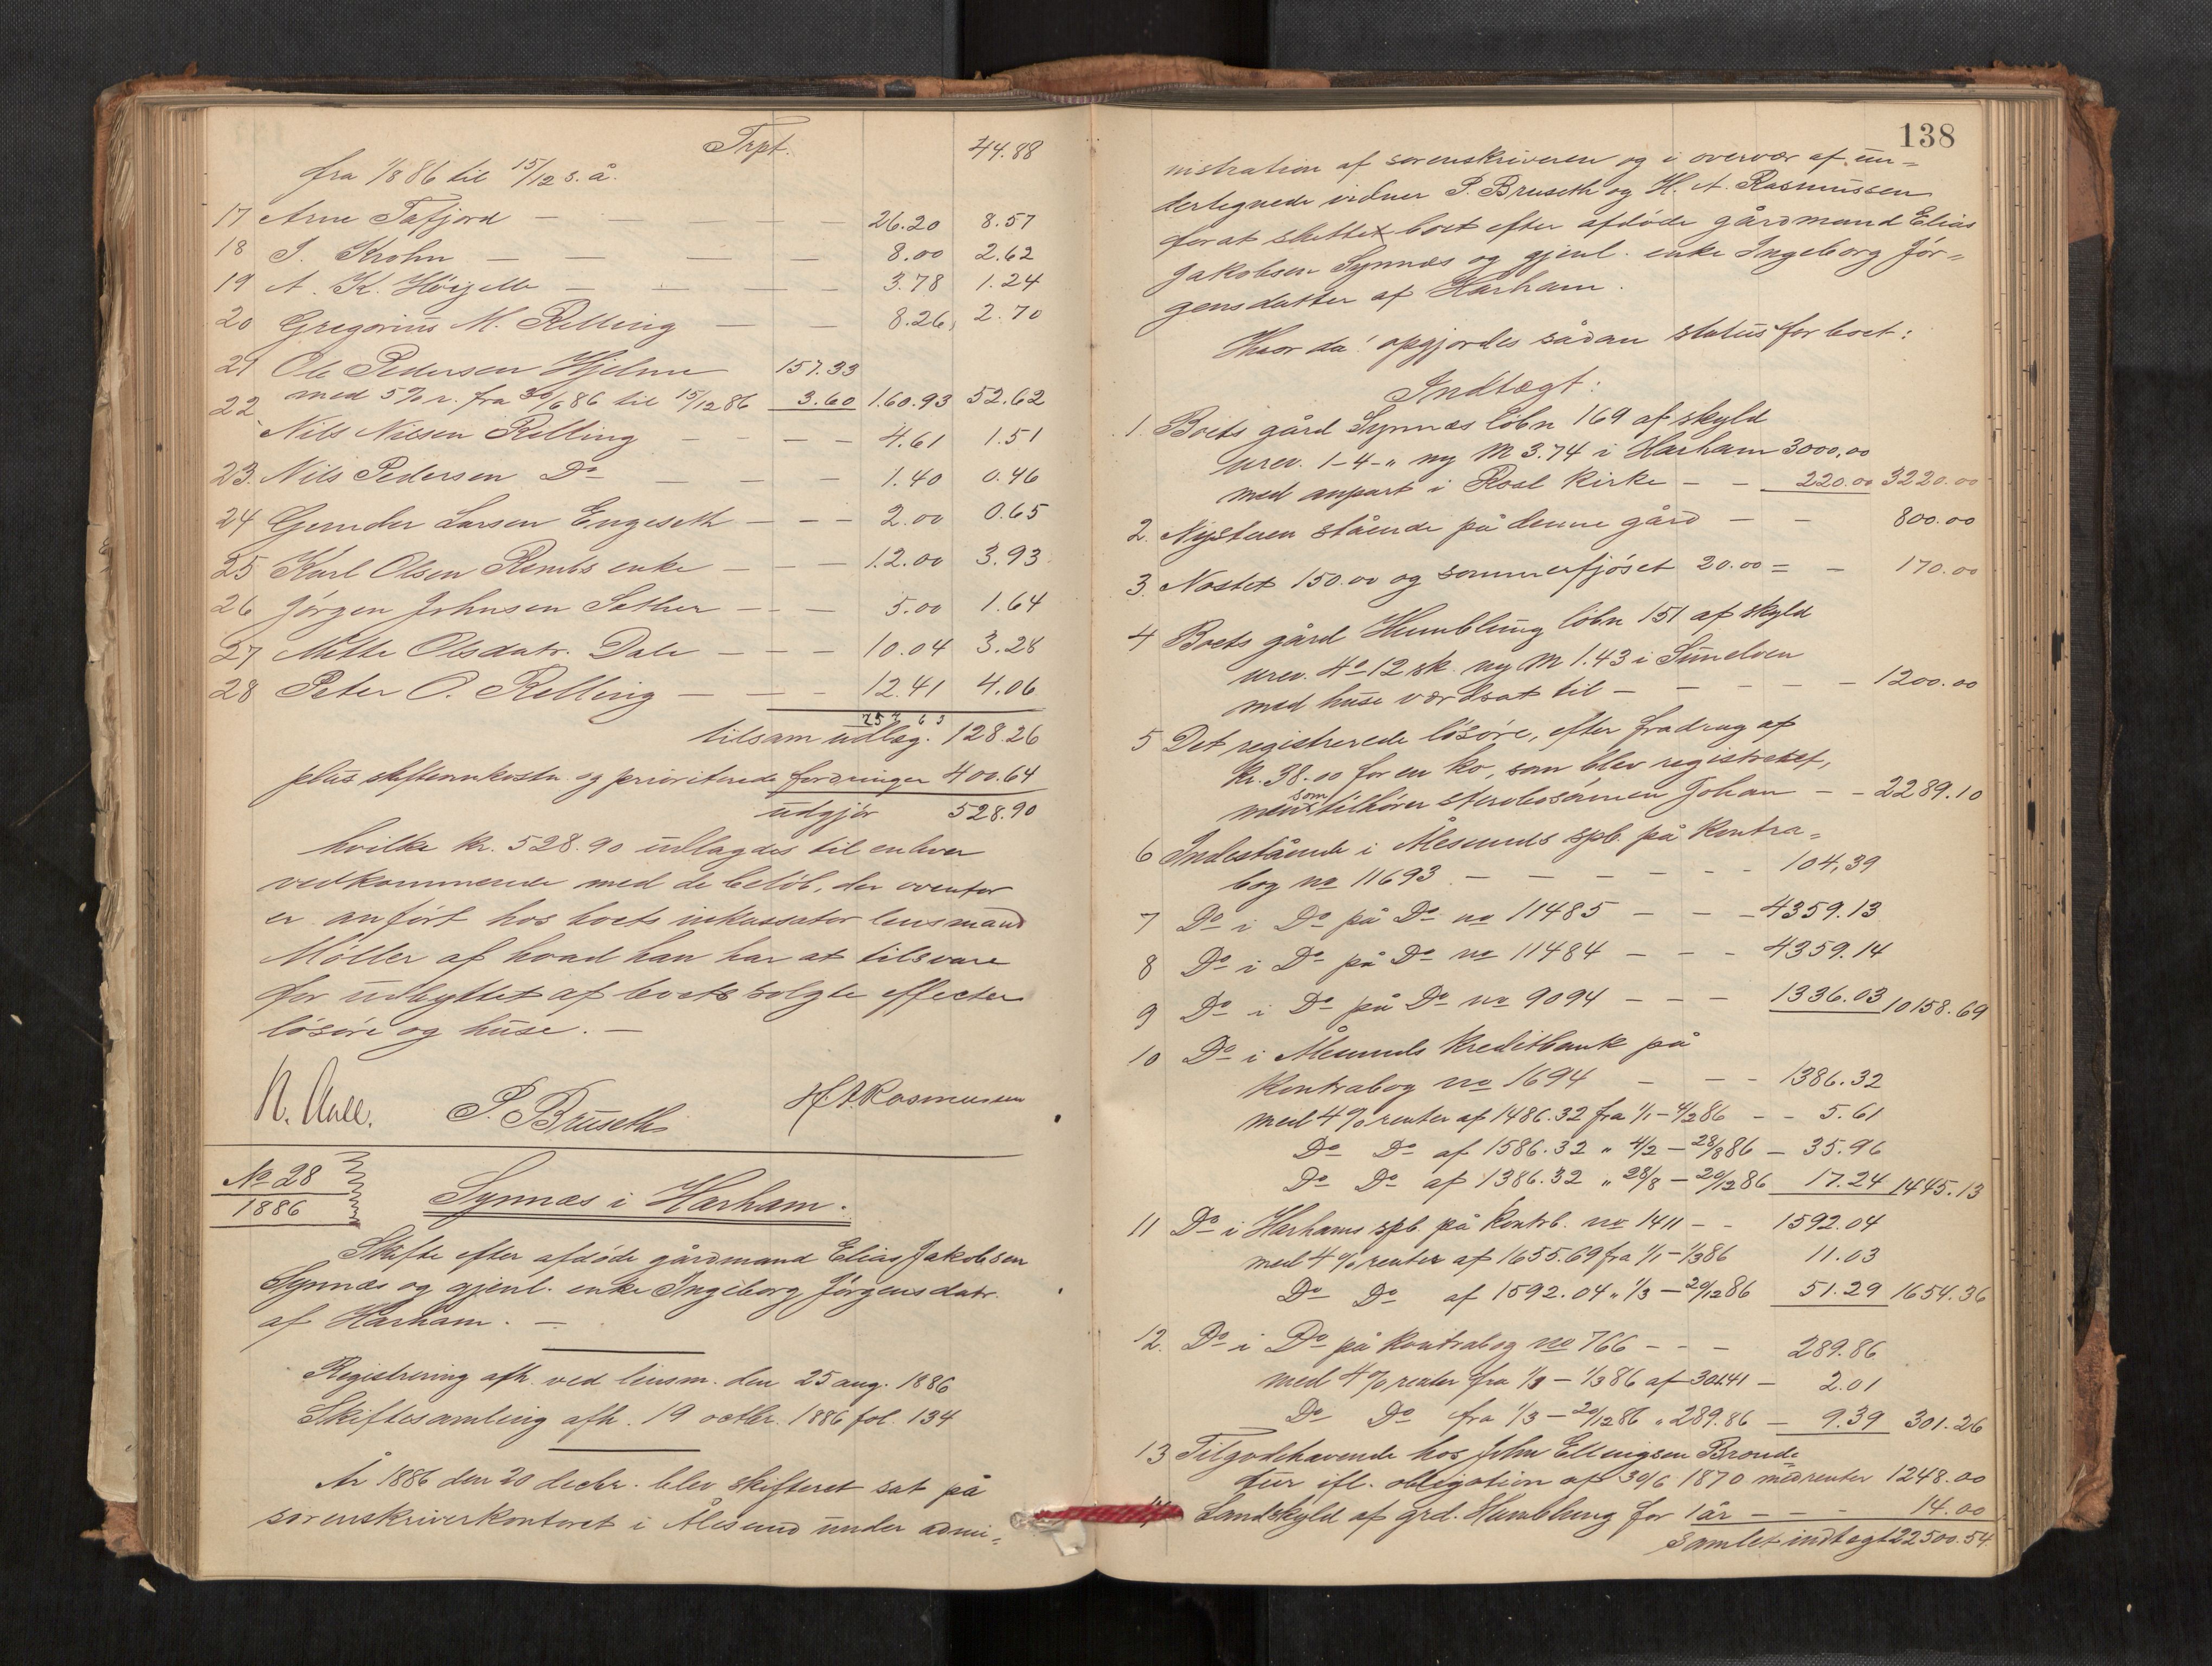 Trpt. 44.88
fra 1/8 86 til 15/12 s. å.
17 Arne Tafjord — — — — — 26.20 8.57
18 I. Krohn — — — — 8.00 2.62
19 A. K. — — — — 3.78 1.24
20 Gregorius M. Relling — — 8.26 2.70
21 Ole Pedersen Hjelme 157.33
22 med 5% r. fra 30/6 86 til 15/12 86 3.60 160.93 52.62
Nils Nilsen Relling — — — — 4.61 1.51
23. Nils Pedersen Do — — — 1.40 0.46
24 Gunder Larsen Engeseth — — — 2.00 0.65
25 Karl Olsen enke — — — 12.00 3.93
26 Jørgen Johnsen Sether — — — 5.00 1.64
27 Mette Olsdatr. Dale — — — 10.04 3.28
28 Peter O. Relling — — — 12.41 4.06
257 63
tilsam udlæg. 128.26
plus skifteomkostn. og prioriterede fordringer 400.64
udgjør 528.90
hvilke kr. 528.90 udlagdes til enhver
vedkommende med de beløb, der ovenfor
er anført hos boets inkassator lensmand
Møller af hvad han har at tilsvare
for udbyttet af boets solgte effecter
løsøre og huse. —
N. Aall. P. Bruseth H. A. Rasmussen
No 28
1886
Synnæs i Harham.
Skifte efter afdøde gårdmand Elias Jakobsen
Synnæs og gjenl. enke Ingeborg Jørgensdatr.
af Harham. —
Registrering afh. ved lensm. den 25 aug. 1886
Skiftesamling afh. 19 octbr. 1886 fol. 134
År 1886 den 20 decbr. blev skifteret sat på
sorenskriverkontoret i Ålesund under admi-
138
nistration af sorenskriveren og i overvær af un-
dertegnede vidner P. Bruseth og H. A. Rasmussen
for at slutte boet efter afdøde gårdmand Elias
Jakobsen Synnæs og gjenl. enke Ingeborg Jør-
gensdatter af Harham.
Hvor da! opgjordes sådan status for boet:
Indtægt:
1. Boets gård Synnæs løbn 169 af skyld
urev. 1-4-" ny M 3.74 i Harham 3000.00
med anpart i Roal kirke — — 220.00 3220.00
2. Nystuen stående på denne gård — — 800.00
3. Nøstet 150.00 og sommerfjøset 20.00 = — 170.00
4 Boets gård Humblung løbn 151 af skyld
urev. 4o-12 sk. ny M 1.43 i Sunelven
med huse værdsat til — — — — — 1200.00
5 Det registrerede løsøre, efter fradrag af
kr. 38.00 for en ko, som blev registreret,
men som tilhører sterbosønnen Johan — — 2289.10
6 Indestående i Ålesunds spb. på kontra-
bog no 11693 — — — — — — 104,39
7 Do i Do på Do no 11485 — — — 4359.13
8 Do i Do på Do no 11484 — — — 4359.14
9 Do i Do på Do no 9094 — — — 1336.03 10158.69
10 Do i Ålesunds Kreditbank på
Kontrabog no 1694 — — — 1386.32
med 4% renter af 1486.32 fra 1/1 – 4/2 86 — — 5.61
Do Do af 1586.32 " 4/2 – 28/8 86 — 35.96
Do Do af 1386.32 " 28/8 – 20/12 86 17.24 1445.13
11 Do i Harhams spb. på Kontrb. no 1411 — — 1592.04
med 4% renter af 1655.69 fra 1/1 – 1/3 86 11.03
Do Do af 1592.04 " 1/3 – 20/12 86 51.29 1654.36
12. Do i Do på kontrabog no 766 — — — 289.86
med 4% renter fra 1/3 – 1/3 86 af 301.41 — 2.01
Do Do fra 1/3 – 20/12 86 " 289.86 — 9.39 301.26
13 Tilgodehavende hos John Ellingsen Bronde-
fur ifl. obligation af 30/6 1870 med renter 1248.00
14 Landskyld af grd. Humblung for 1 år — — — 14.00
Samlet indtægt 22500.54